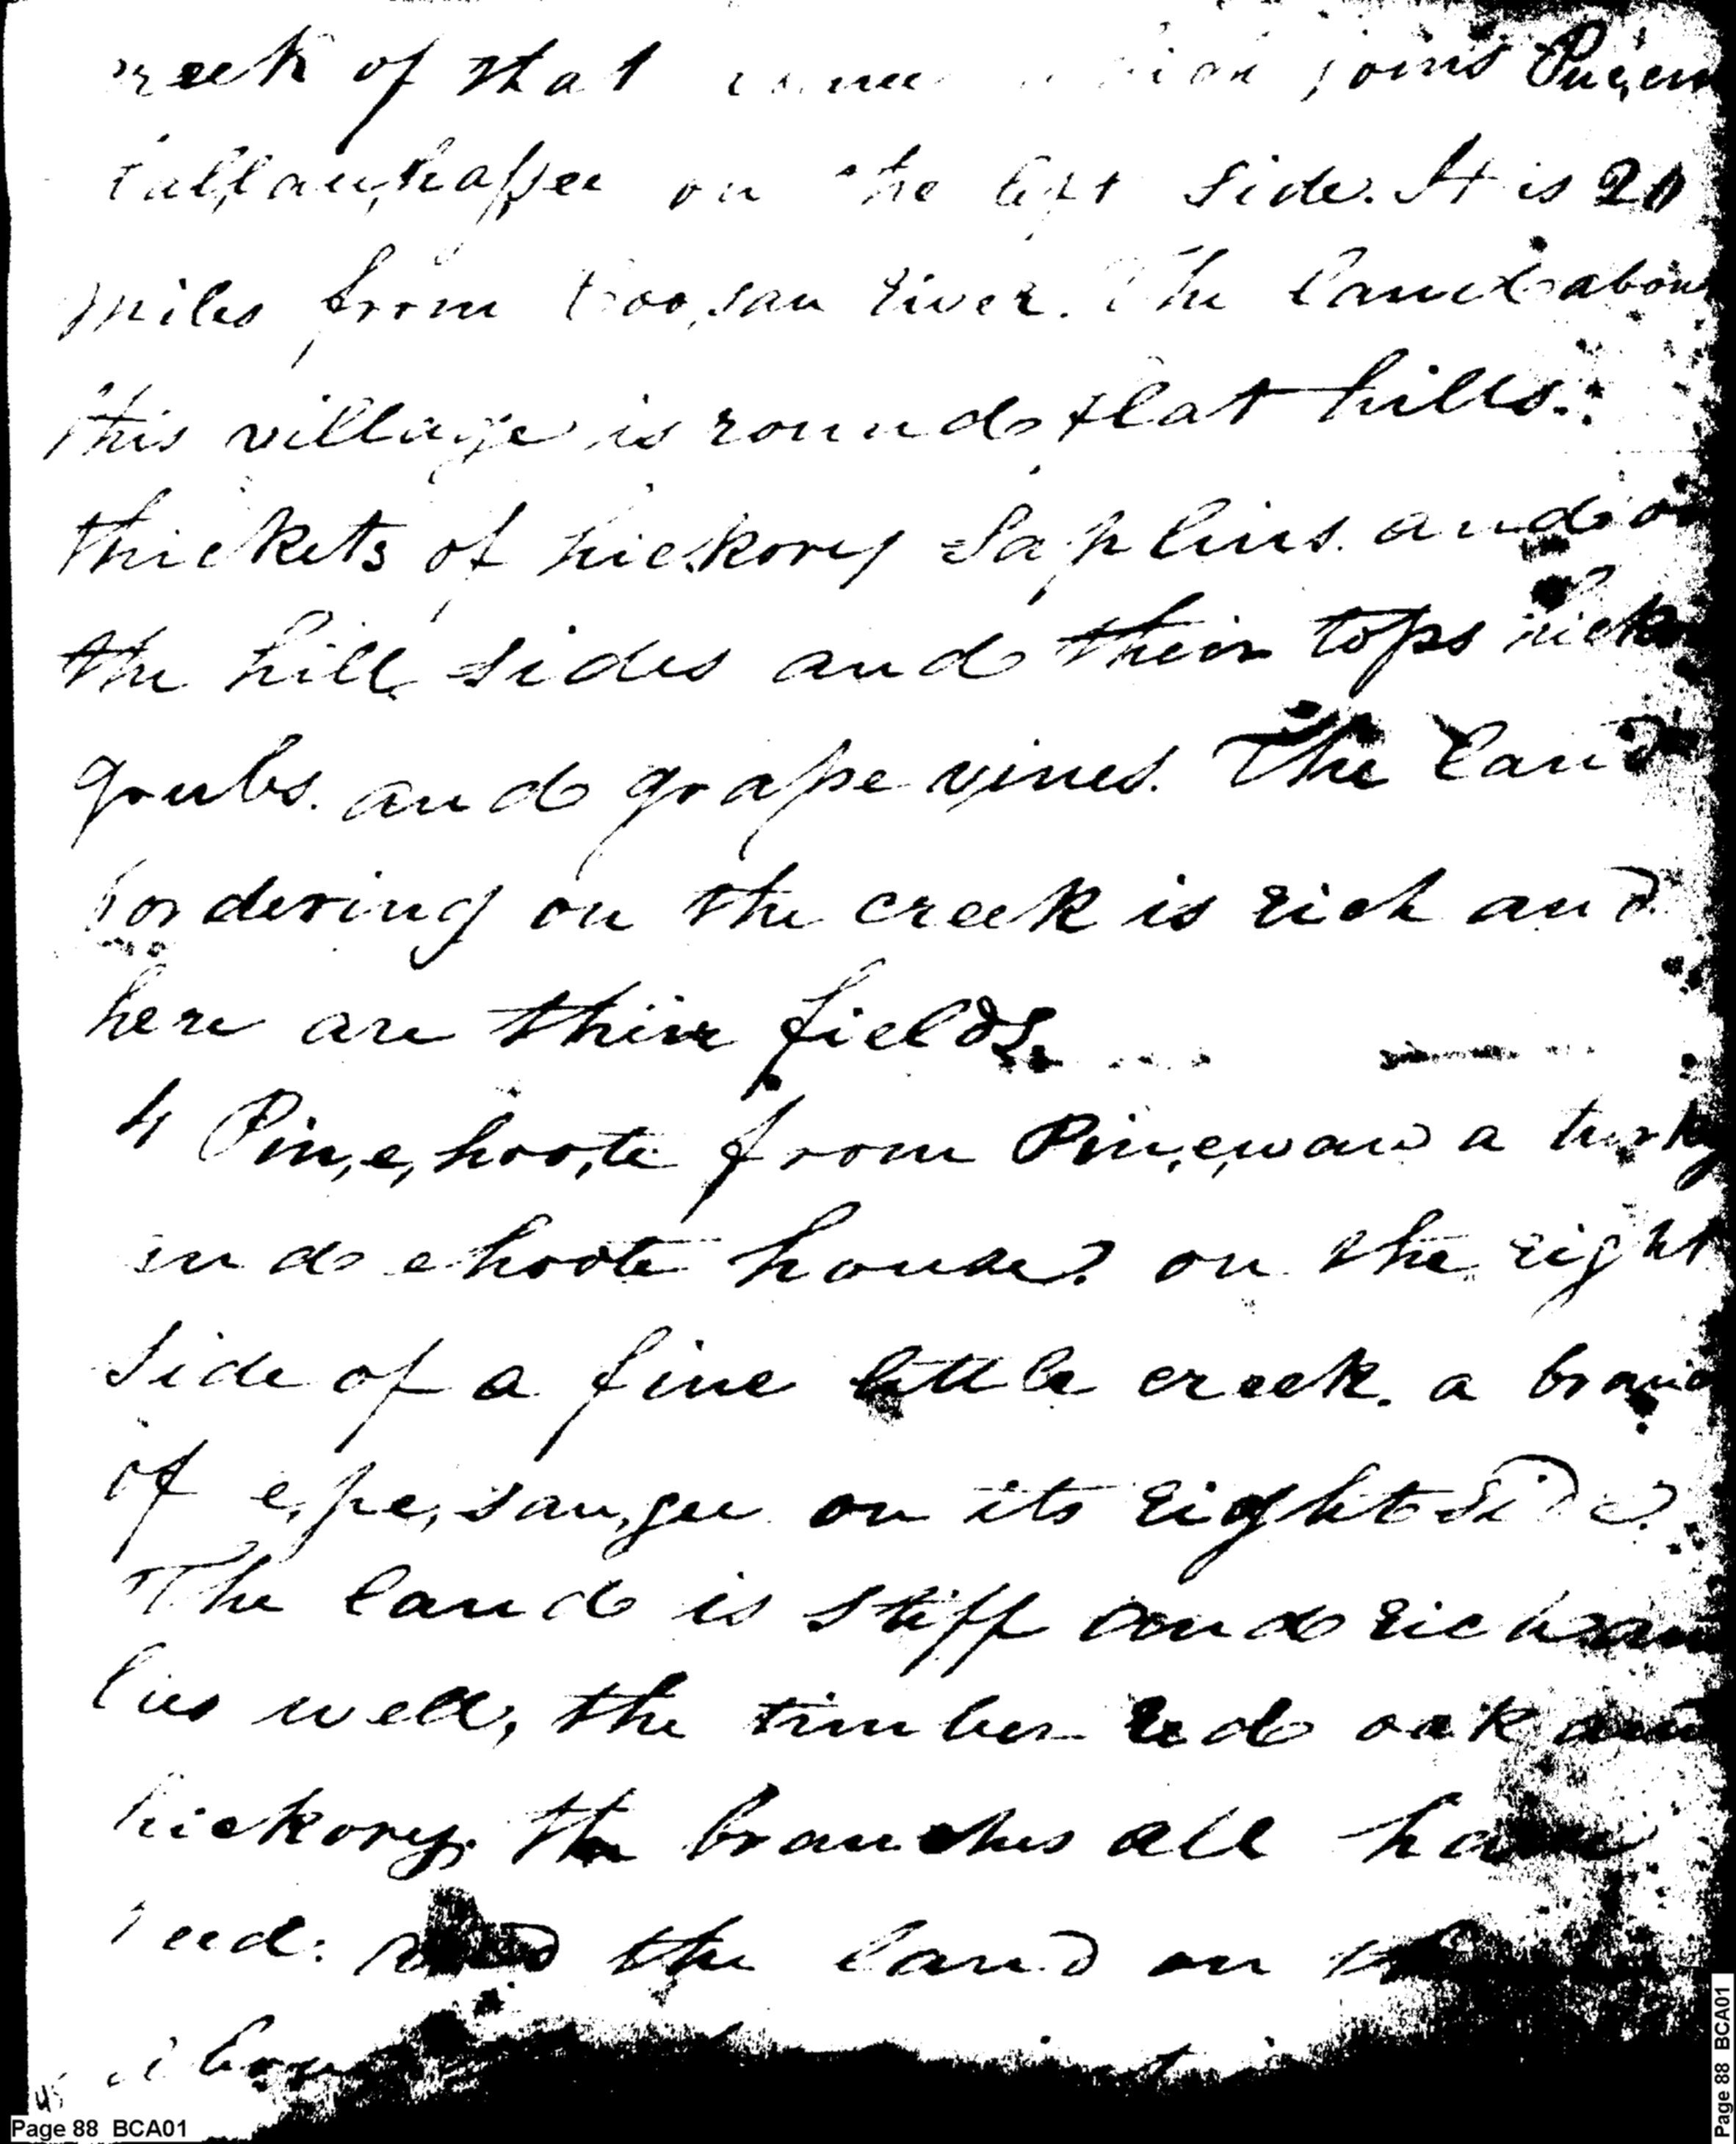 creek of that name which joins
tallauhassee on the left side. It is 20
miles from Coo,sau river. The land about
this village is round flat hills.
thickets of hickory saplins. and o
the hill sides and their tops hick
grubs. and grape vines. The land
bordering on the creek is rich and
here are their fields.
4 Pin,e,hoo,te from Pin,e,waw a turky
and ehoote house. on the right
side of a fine little creek. a branc
of e,pe,sau,gee on its right side.
The land is stiff and rich an
lies well, the timber red oak and
hickory, the branches all have
reed. and the land on th
Page 88 BCA01
Page 88 BCA01